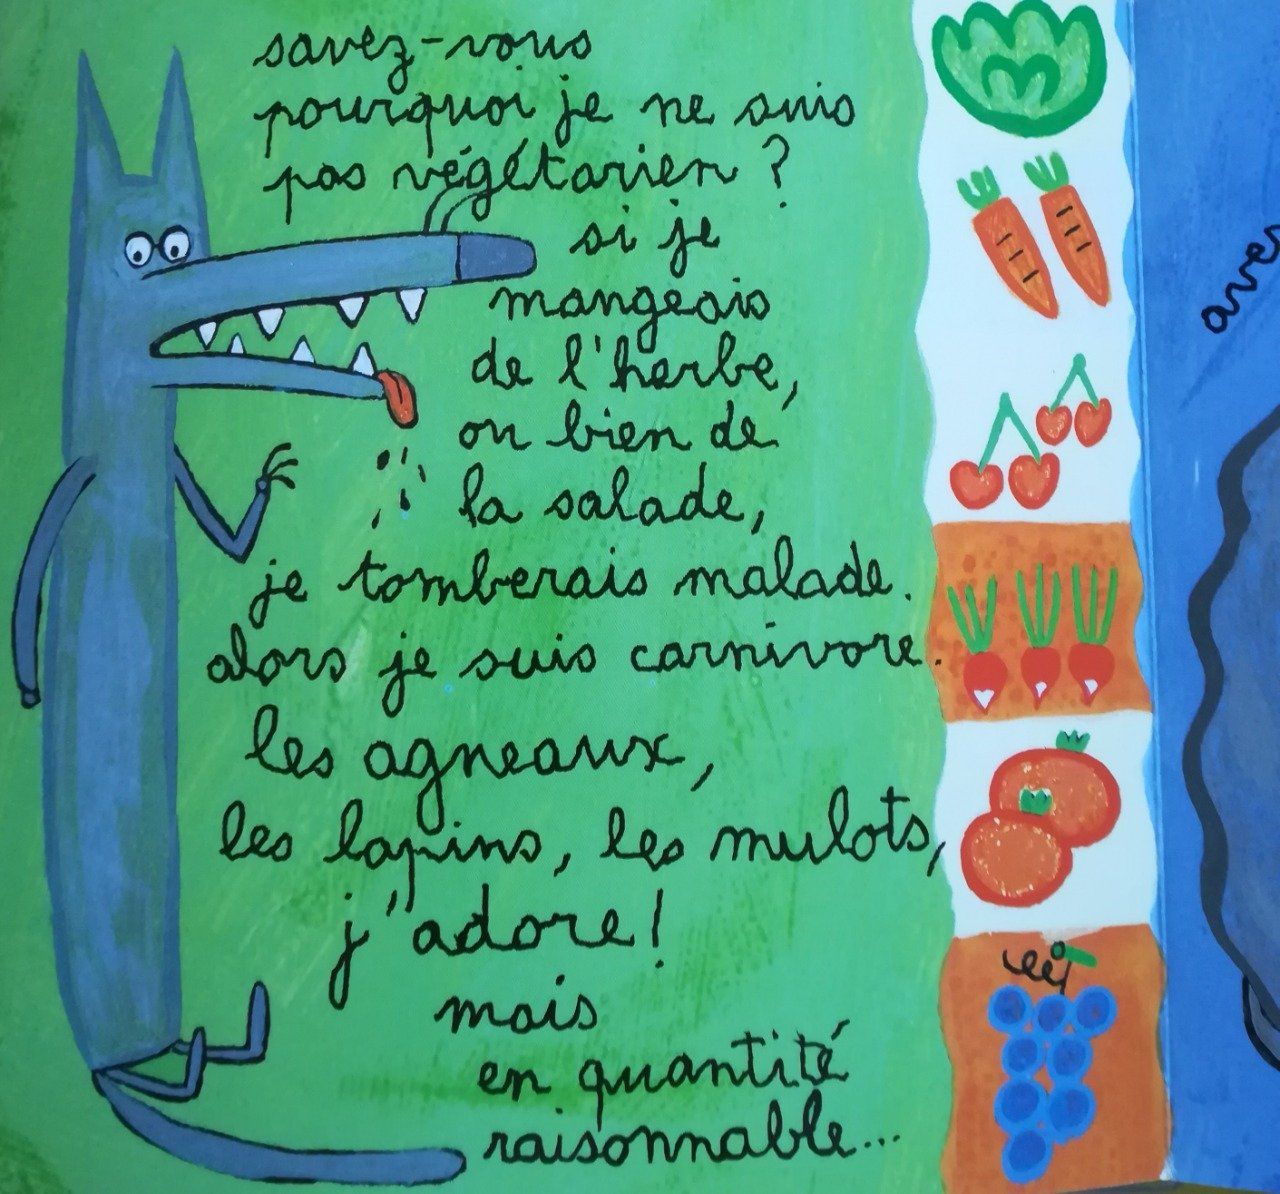 savez-vous
pourquoi je ne suis
pas végétarien ?
si je
mangeais
de l'herbe,
ou bien de
la salade,
je tomberais malade.
alors je suis carnivore.
les agneaux,
les lapins, les mulots,
j'adore !
mais
en quantité
raisonnable...